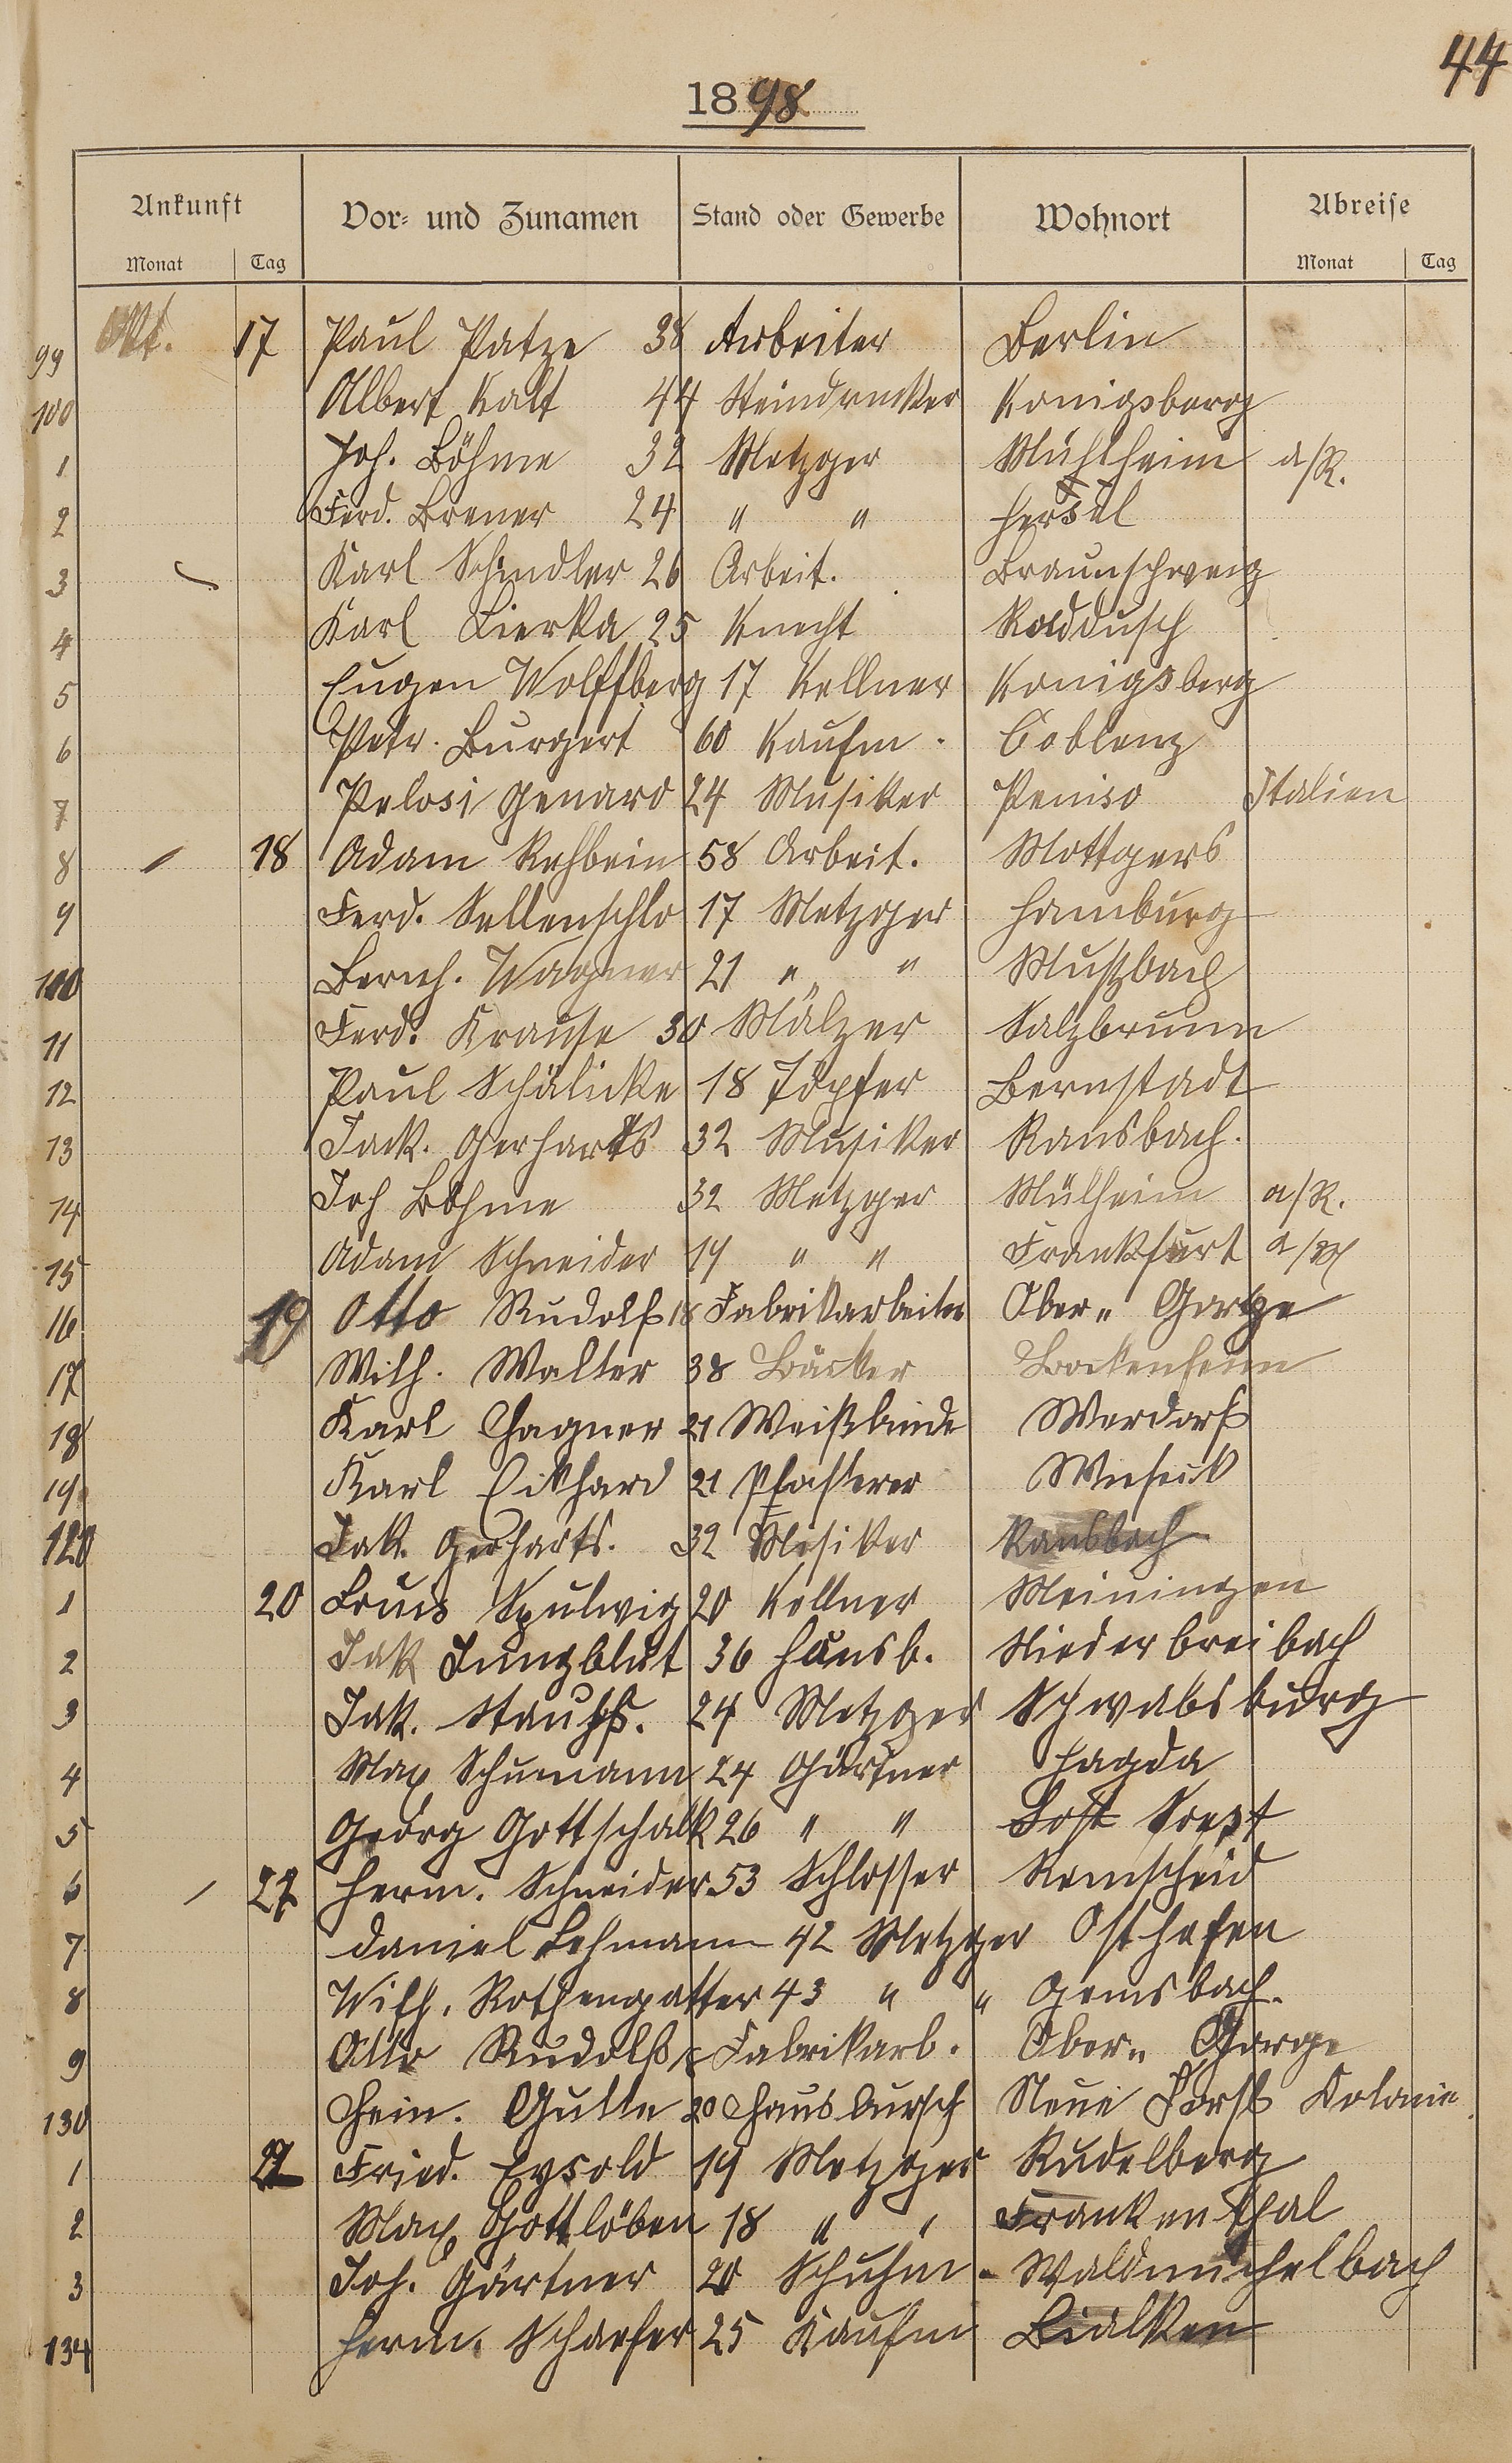 44
1898
Ankunft Vor- und Zunamen Stand oder Gewerbe Wohnort Abreise
Monat Tag Monat Tag
99 Okt. 17 Paul Patze 38 Arbeiter Berlin
100 Albert Kalt 44 Steindrucker Konigsberg
1 Joh. Böhme 32 Metzger Mühlheim a/R.
2 Ferd. Brener 24 " " Hersel
3 Karl Schindler 26 Arbeit. Braunschweig
4 Karl Lierka 25 Knecht Raddusch
5 Eugen Wolffberg 17 Kellner Konigsberg
6 Petr. Burgert 60 Kaufm. Coblenz
7 Pelosi Genaro 24 Musiker Peniso Italien
8 18 Adam Rehbein 58 Arbeit. Mottgers
9 Ferd. Sellenschlo 17 Metzger Hamburg
110 Bernh. Wagner 21 " " Mußbach
11 Ferd. Krause 30 Mälzer Salzbrunn
12 Paul Schälicke 18 Töpfer Bernstadt
13 Jack. Gerharts 32 Musiker Ransbach.
14 Joh Böhme 32 Metzger Mülheim a/R.
15 Adam Schneider 19 " " Frankfurt a/M
16 19 Otto Rudolf 18 Fabrikarbeiter Ober "
17 Wilh. Walter 38 Bäcker Bockenheim
18 Karl Hagner 21 Weißbinde Werdorf
19 Karl Eikhard 21 Pflasterer Wieseck
120 Jak. Gerharts. 32 Musiker Ransbach
1 20 Louis Spulwig 20 Kellner Meiningen
2 Jak Jungblut 36 Hausb. Niederbreibach
3 Jak. Stauff. 24 Metzger Schwabsburg
4 Max Schumann 24 Gärtner
5 Georg Gottschalk 26 " " Soest
6 Herm. Schneider 53 Schlosser Remscheid
7 Daniel Lehmann 42 Metzger Osthofen
8 Wilh. Rothengatter 43 " " Gernsbach.
9 Otto Rudolf Fabrikarb. Ober "
130 Hein. Gutte 20 Hausbursch Neue Forst Kolonie
1 Fried. Eysold 19 Metzger Rudelberg
2 Max Gottlöben 18 " " Frankenthal
3 Joh. Gärtner 20 Schuhm - Waldmichelbach
134 Herm. Schaefer 25 Kaufm Bialken